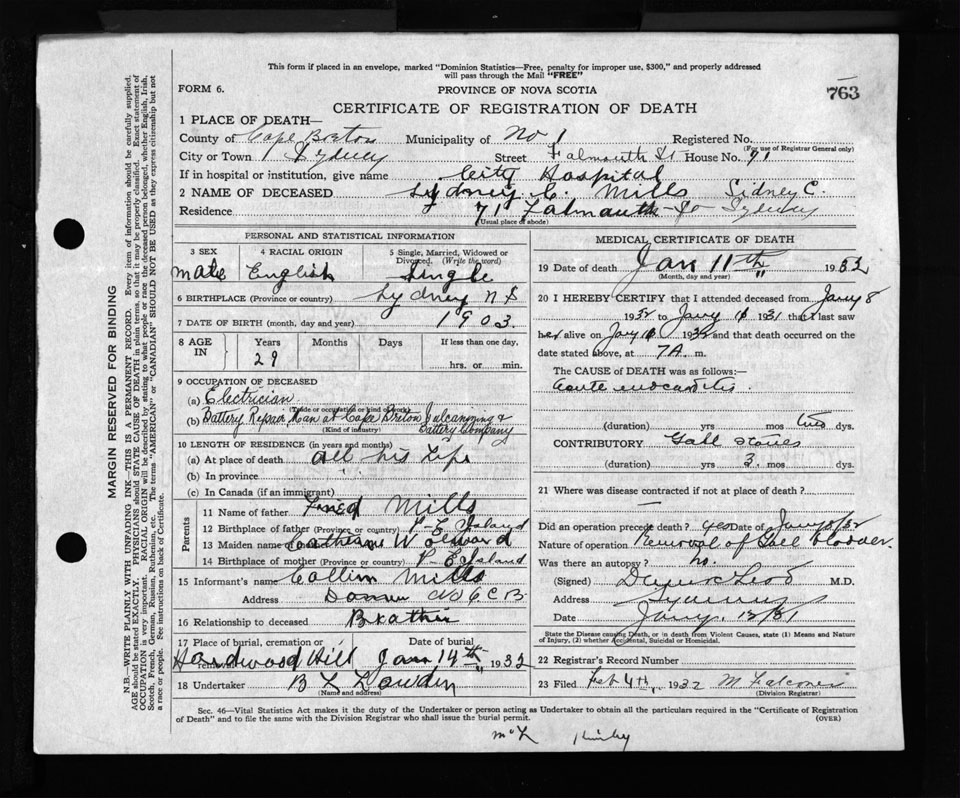 This form if placed in an envelope, marked "Dominion Statistics—Free, penalty for improper use, $300," and properly addressed
will pass through the Mail "FREE"
FORM 6. PROVINCE OF NOVA SCOTIA 763
CERTIFICATE OF REGISTRATION OF DEATH
1 PLACE OF DEATH—
County of Cape Breton Municipality of No 1 Registered No.
(For use of Registrar General only)
City or Town Sydney Street Falmouth St House No. 71
If in hospital or institution, give name City Hospital
2 NAME OF DECEASED Sydney C. Mills Sidney C.
Residence 71 Falmouth St Sydney
(Usual place of abode)
PERSONAL AND STATISTICAL INFORMATION
3 SEX 4 RACIAL ORIGIN 5 Single, Married, Widowed or
Divorced. (Write the word)
Male English Single
6 BIRTHPLACE (Province or country) Sydney N S
7 DATE OF BIRTH (month, day and year) 1903.
8 AGE IN Years Months Days If less than one day.
29 hrs. or min.
9 OCCUPATION OF DECEASED
(a) Electrician
(Trade or occupation or kind of work)
(b) Battery Repair Man at Cape Breton Vulcanizing & Battery Company
(Kind of industry)
10 LENGTH OF RESIDENCE (in years and months)
(a) At place of death all his Life
(b) In province
(c) In Canada (if an immigrant)
Parents
11 Name of father Fred Mills
12 Birthplace of father (Province or country) P. E Island
13 Maiden name of Catherine
14 Birthplace of mother (Province or country) P. E Island
15 Informant's name Mills
Address C.B.
16 Relationship to deceased Brother
17 Place of burial, cremation or Date of burial
Hardwood Hill Jan 14th 1932
18 Undertaker B L
(Name and address)
MEDICAL CERTIFICATE OF DEATH
19 Date of death Jan 11th 1932
(Month, day and year)
20 I HEREBY CERTIFY that I attended deceased from Jany 8
1932 to Jany 11 1931 that I last saw
her alive on Jany 1932 and that death occurred on
date stated above, at 7 A. m.
The CAUSE OF DEATH was as follows:—
acute endocarditis.
(duration) yrs mos two dys.
CONTRIBUTORY Gall stones
(duration) yrs 3. mos dys.
21 Where was disease contracted if not at place of death?
Did an operation precede death? yes Date of Jany 8/32
Nature of operation Removal of Gall bladder.
Was there an autopsy? no.
(Signed) M.D.
Address Sydney
Date Jany. 12/31
State the Disease causing Death, or in death from Violent Causes, state (1) Means and Nature
of Injury, (2) whether Accidental, Suicidal or Homicidal.
22 Registrar's Record Number
23 Filed Feb 4th, 1932
(Division Registrar)
Sec. 46—Vital Statistics Act makes it the duty of the Undertaker or person acting as Undertaker to obtain all the particulars required in the "Certificate of Registration
of Death" and to file the same with the Division Registrar who shall issue the burial permit. (OVER)
MARGIN RESERVED FOR BINDING
N.B.—WRITE PLAINLY WITH UNFADING INK—THIS IS A PERMANENT RECORD. Every item of information should be carefully supplied.
AGE should be stated EXACTLY. PHYSICIANS should STATE CAUSE OF DEATH in plain terms, so that it may be properly classified. Exact statement of
OCCUPATION is very important. RACIAL ORIGIN will be described by stating to what people or race the deceased person belonged, whether English, Irish,
Scotch, French, German, Russian, Ruthenian, etc. The terms "AMERICAN" or "CANADIAN" SHOULD NOT BE USED as they express citizenship but not
a race or people. See instructions on back of Certificate.